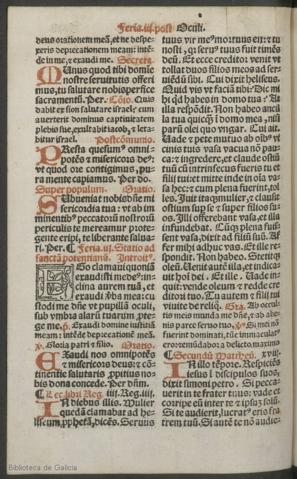 Feria.iij.post Oculi.
deus orationem meã, et ne despe-
xeris deprecationem meam: intẽ-
de in me, et exaudi me. Secreta.
MUnus quod tibi domine
nostre seruitutis offeri
mus, tu salutare nobis perfice
sacramentũ. Per. Cõio. Quis
dabit ex syon salutare israel: cum
auerterit dominus captiuitatem
plebis sue, exultabit iacob, et leta-
bitur israel. Postcõmunio.
PResta quesumus omni-
potẽs et misericors deus:
vt quod ore contigimus, pu-
ra mente capiamus. Per do.
Super populum. Oratio.
SUbueniat nobis dñe mi
sericordia tua: vt ab im
minentibus peccatorũ nostrorũ
periculis te mereamur protege-
nte eripi, te liberante salua-
ri. Per. Feria.iij. Statio ad
sanctã potentianã. Introit.
EGo clamaui quoniã
exaudisti me deus: in-
clina aurem tuã, et
exaudi verba mea: cu
stodi me dñe vt pupillã oculi,
sub vmbra alarũ tuarum prote-
ge me. p. Exaudi domine iustitiã
meam: intẽde deprecationẽ meã.
Gloria patri et filio. Oratio.
EXaudi nos omnipotẽs
et misericors deus: et cõ-
tinentie salutaris propitius no-
bis dona concede. Per dñm.
Lec. libri Reg. iiij. Reg. iiij.
IN diebus illis. Mulier
quedã clamabat ad he-
liseum, prophetã, dicẽs. Seruus
tuus vir meus mortuus est: et tu
nosti, quia seruus tuus fuit timẽs
deũ. Et ecce creditor venit vt
tollat duos filios meos ad ser-
uiẽdũ sibi. Cui dixit heliseus.
Quid vis vt faciã tibi? Dic mi
hi quid habes in domo tua? At
illa respõdit. Non habeo ancil-
la tua quicquam ĩ domo mea, nisi
parũ olei quo vngar. Cui ait.
Uade et pete mutuo ab oibus vi
cinis tuis vasa vacua nõ pau-
ca: et ingredere, et claude ostiũ
tuũ cũ intrinsecus fueris tu et
filij tui: et mitte inde in oia va-
sa hec: et cum plena fuerint, tol
les. Iuit itaque mulier, et clausit
ostium sup se et super filios su-
os. Illi offerebant vasa, et illa
infundebat. Cũque plena fuis-
sent vasa, dixit ad filiũ suũ. Af
fer mihi adhuc vas. Et ille re-
spondit. Non habeo. Stetitque
oleũ. Uenit autẽ illa, et indica
uit hoĩ dei. Et ille. Uade in-
quit: vende oleum et redde cre
ditori tuo. Tu autem et filij tui
viuite de reliquo. Gra. Ab occul-
tis meis munda me dñe, et ab alie-
nis parce seruo tuo. Si mei nõ
fuerint dominati, tũc immaculatus
ero: et emũdabor a delicto maximo
Secundũ Mattheũ. xviij.
IN illo tẽpore. Respiciẽs
iesus ĩ discipulos suos,
dixit simoni petro. Si pecca-
uerit in te frater tuus: vade et
corripe eum inter te et ipsũ solũ.
Si te audierit, lucratus eris fra
trem tuũ. Si autẽ te nõ audie-
Biblioteca de Galicia